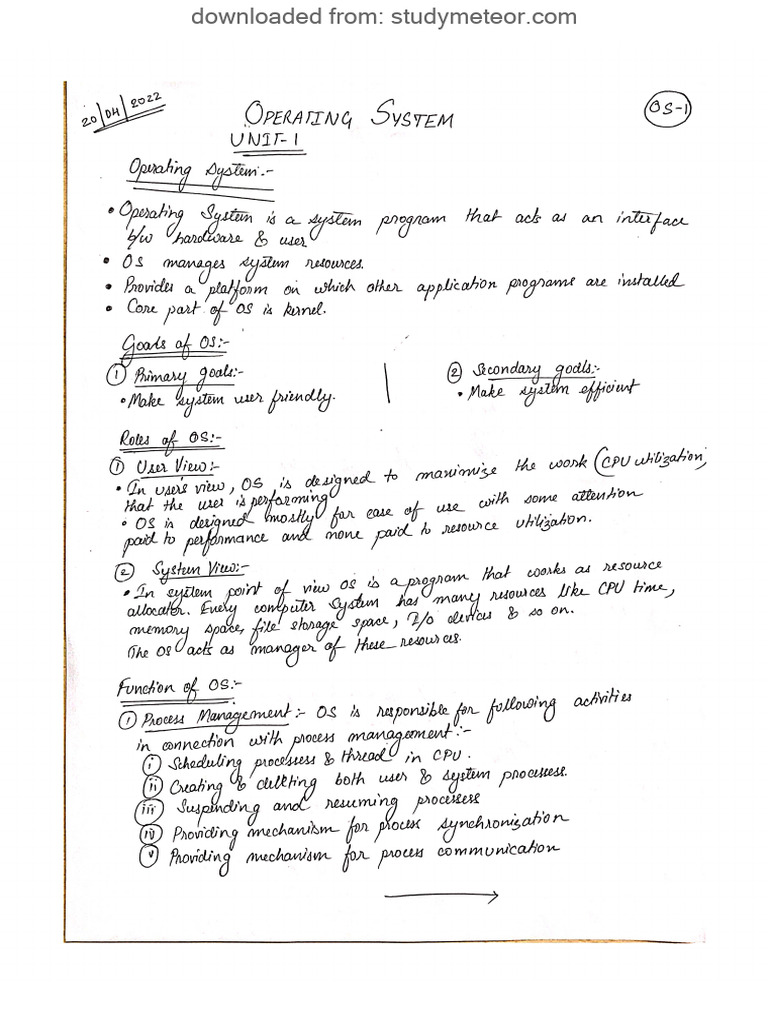 downloaded from: studymeteor.com
20/04/2022
OPERATING SYSTEM
OS-1
UNIT-1
Operating System:-
• Operating System is a system program that acts as an interface
b/w hardware & user
• OS manages system resources.
• Provides a platform on which other application programs are installed
• Core part of OS is kernel.
Goals of OS:-
① Primary goals:-
• Make system user friendly.
② Secondary goals:-
• Make system efficient
Roles of OS:-
① User View:-
• In user's view, OS is designed to maximize the work (CPU utilization)
that the user is performing
• OS is designed mostly for ease of use with some attention
paid to performance and none paid to resource utilization.
② System View:-
• In system point of view OS is a program that works as resource
allocator. Every computer system has many resources like CPU time,
memory space, file storage space, I/o devices & so on.
The OS acts as manager of these resources.
Function of OS:-
① Process Management:- OS is responsible for following activities
in connection with process management:-
i Scheduling processess & thread in CPU.
ii Creating & deleting both user & system processess.
iii Suspending and resuming processess
iv Providing mechanism for process synchronization
v Providing mechanism for process communication